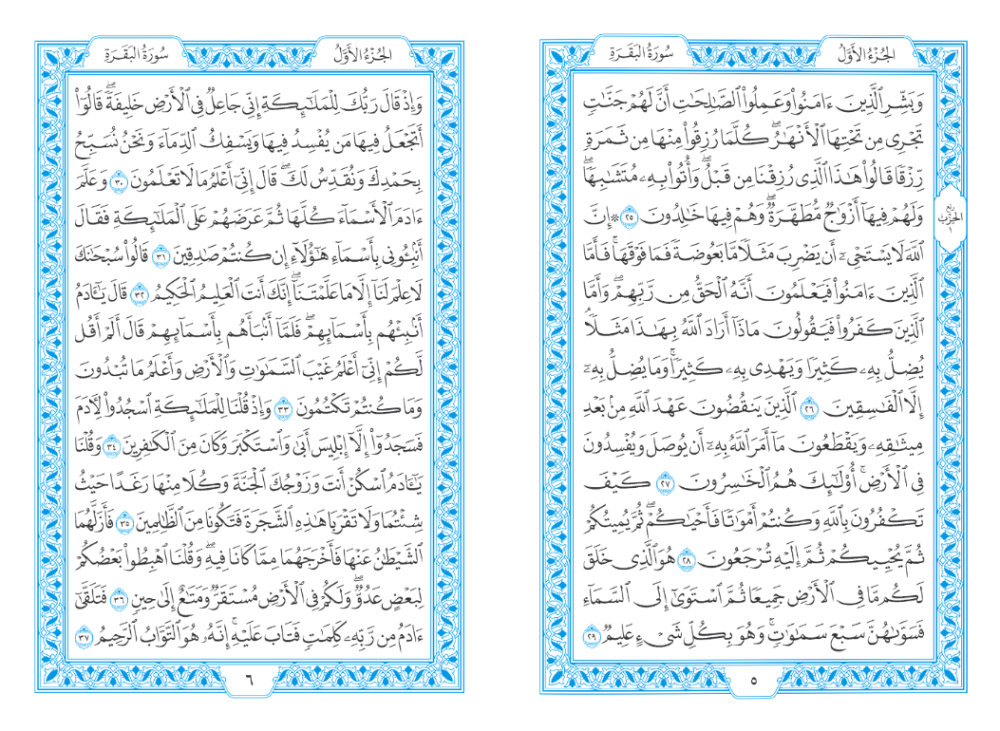 الجُزْءُ الأَوَّلُ
سُورَةُ البَقَرَةِ
وَبَشِّرِ ٱلَّذِينَ ءَامَنُوا۟ وَعَمِلُوا۟ ٱلصَّٰلِحَٰتِ أَنَّ لَهُمْ جَنَّٰتٍ
تَجْرِى مِن تَحْتِهَا ٱلْأَنْهَٰرُ ۖ كُلَّمَا رُزِقُوا۟ مِنْهَا مِن ثَمَرَةٍ
رِّزْقًا قَالُوا۟ هَٰذَا ٱلَّذِى رُزِقْنَا مِن قَبْلُ ۖ وَأُتُوا۟ بِهِۦ مُتَشَٰبِهًا ۖ
وَلَهُمْ فِيهَآ أَزْوَٰجٌ مُّطَهَّرَةٌ ۖ وَهُمْ فِيهَا خَٰلِدُونَ ٢٥ ۞ إِنَّ
ٱللَّهَ لَا يَسْتَحْىِۦٓ أَن يَضْرِبَ مَثَلًا مَّا بَعُوضَةً فَمَا فَوْقَهَا ۚ فَأَمَّا
ٱلَّذِينَ ءَامَنُوا۟ فَيَعْلَمُونَ أَنَّهُ ٱلْحَقُّ مِن رَّبِّهِمْ ۖ وَأَمَّا
ٱلَّذِينَ كَفَرُوا۟ فَيَقُولُونَ مَاذَآ أَرَادَ ٱللَّهُ بِهَٰذَا مَثَلًا ۘ
يُضِلُّ بِهِۦ كَثِيرًا وَيَهْدِى بِهِۦ كَثِيرًا ۚ وَمَا يُضِلُّ بِهِۦٓ
إِلَّا ٱلْفَٰسِقِينَ ٢٦ ٱلَّذِينَ يَنقُضُونَ عَهْدَ ٱللَّهِ مِنۢ بَعْدِ
مِيثَٰقِهِۦ وَيَقْطَعُونَ مَآ أَمَرَ ٱللَّهُ بِهِۦٓ أَن يُوصَلَ وَيُفْسِدُونَ
فِى ٱلْأَرْضِ ۚ أُو۟لَٰٓئِكَ هُمُ ٱلْخَٰسِرُونَ ٢٧ كَيْفَ
تَكْفُرُونَ بِٱللَّهِ وَكُنتُمْ أَمْوَٰتًا فَأَحْيَٰكُمْ ۖ ثُمَّ يُمِيتُكُمْ
ثُمَّ يُحْيِيكُمْ ثُمَّ إِلَيْهِ تُرْجَعُونَ ٢٨ هُوَ ٱلَّذِى خَلَقَ
لَكُم مَّا فِى ٱلْأَرْضِ جَمِيعًا ثُمَّ ٱسْتَوَىٰٓ إِلَى ٱلسَّمَآءِ
فَسَوَّىٰهُنَّ سَبْعَ سَمَٰوَٰتٍ ۚ وَهُوَ بِكُلِّ شَىْءٍ عَلِيمٌ ٢٩
ربع
الحزب
١
٥
الجُزْءُ الأَوَّلُ
سُورَةُ البَقَرَةِ
وَإِذْ قَالَ رَبُّكَ لِلْمَلَٰٓئِكَةِ إِنِّى جَاعِلٌ فِى ٱلْأَرْضِ خَلِيفَةً ۖ قَالُوٓا۟
أَتَجْعَلُ فِيهَا مَن يُفْسِدُ فِيهَا وَيَسْفِكُ ٱلدِّمَآءَ وَنَحْنُ نُسَبِّحُ
بِحَمْدِكَ وَنُقَدِّسُ لَكَ ۖ قَالَ إِنِّىٓ أَعْلَمُ مَا لَا تَعْلَمُونَ ٣٠ وَعَلَّمَ
ءَادَمَ ٱلْأَسْمَآءَ كُلَّهَا ثُمَّ عَرَضَهُمْ عَلَى ٱلْمَلَٰٓئِكَةِ فَقَالَ
أَنۢبِـُٔونِى بِأَسْمَآءِ هَٰٓؤُلَآءِ إِن كُنتُمْ صَٰدِقِينَ ٣١ قَالُوا۟ سُبْحَٰنَكَ
لَا عِلْمَ لَنَآ إِلَّا مَا عَلَّمْتَنَآ ۖ إِنَّكَ أَنتَ ٱلْعَلِيمُ ٱلْحَكِيمُ ٣٢ قَالَ يَٰٓـَٔادَمُ
أَنۢبِئْهُم بِأَسْمَآئِهِمْ ۖ فَلَمَّآ أَنۢبَأَهُم بِأَسْمَآئِهِمْ قَالَ أَلَمْ أَقُل
لَّكُمْ إِنِّىٓ أَعْلَمُ غَيْبَ ٱلسَّمَٰوَٰتِ وَٱلْأَرْضِ وَأَعْلَمُ مَا تُبْدُونَ
وَمَا كُنتُمْ تَكْتُمُونَ ٣٣ وَإِذْ قُلْنَا لِلْمَلَٰٓئِكَةِ ٱسْجُدُوا۟ لِـَٔادَمَ
فَسَجَدُوٓا۟ إِلَّآ إِبْلِيسَ أَبَىٰ وَٱسْتَكْبَرَ وَكَانَ مِنَ ٱلْكَٰفِرِينَ ٣٤ وَقُلْنَا
يَٰٓـَٔادَمُ ٱسْكُنْ أَنتَ وَزَوْجُكَ ٱلْجَنَّةَ وَكُلَا مِنْهَا رَغَدًا حَيْثُ
شِئْتُمَا وَلَا تَقْرَبَا هَٰذِهِ ٱلشَّجَرَةَ فَتَكُونَا مِنَ ٱلظَّٰلِمِينَ ٣٥ فَأَزَلَّهُمَا
ٱلشَّيْطَٰنُ عَنْهَا فَأَخْرَجَهُمَا مِمَّا كَانَا فِيهِ ۖ وَقُلْنَا ٱهْبِطُوا۟ بَعْضُكُمْ
لِبَعْضٍ عَدُوٌّ ۖ وَلَكُمْ فِى ٱلْأَرْضِ مُسْتَقَرٌّ وَمَتَٰعٌ إِلَىٰ حِينٍ ٣٦ فَتَلَقَّىٰٓ
ءَادَمُ مِن رَّبِّهِۦ كَلِمَٰتٍ فَتَابَ عَلَيْهِ ۚ إِنَّهُۥ هُوَ ٱلتَّوَّابُ ٱلرَّحِيمُ ٣٧
٦